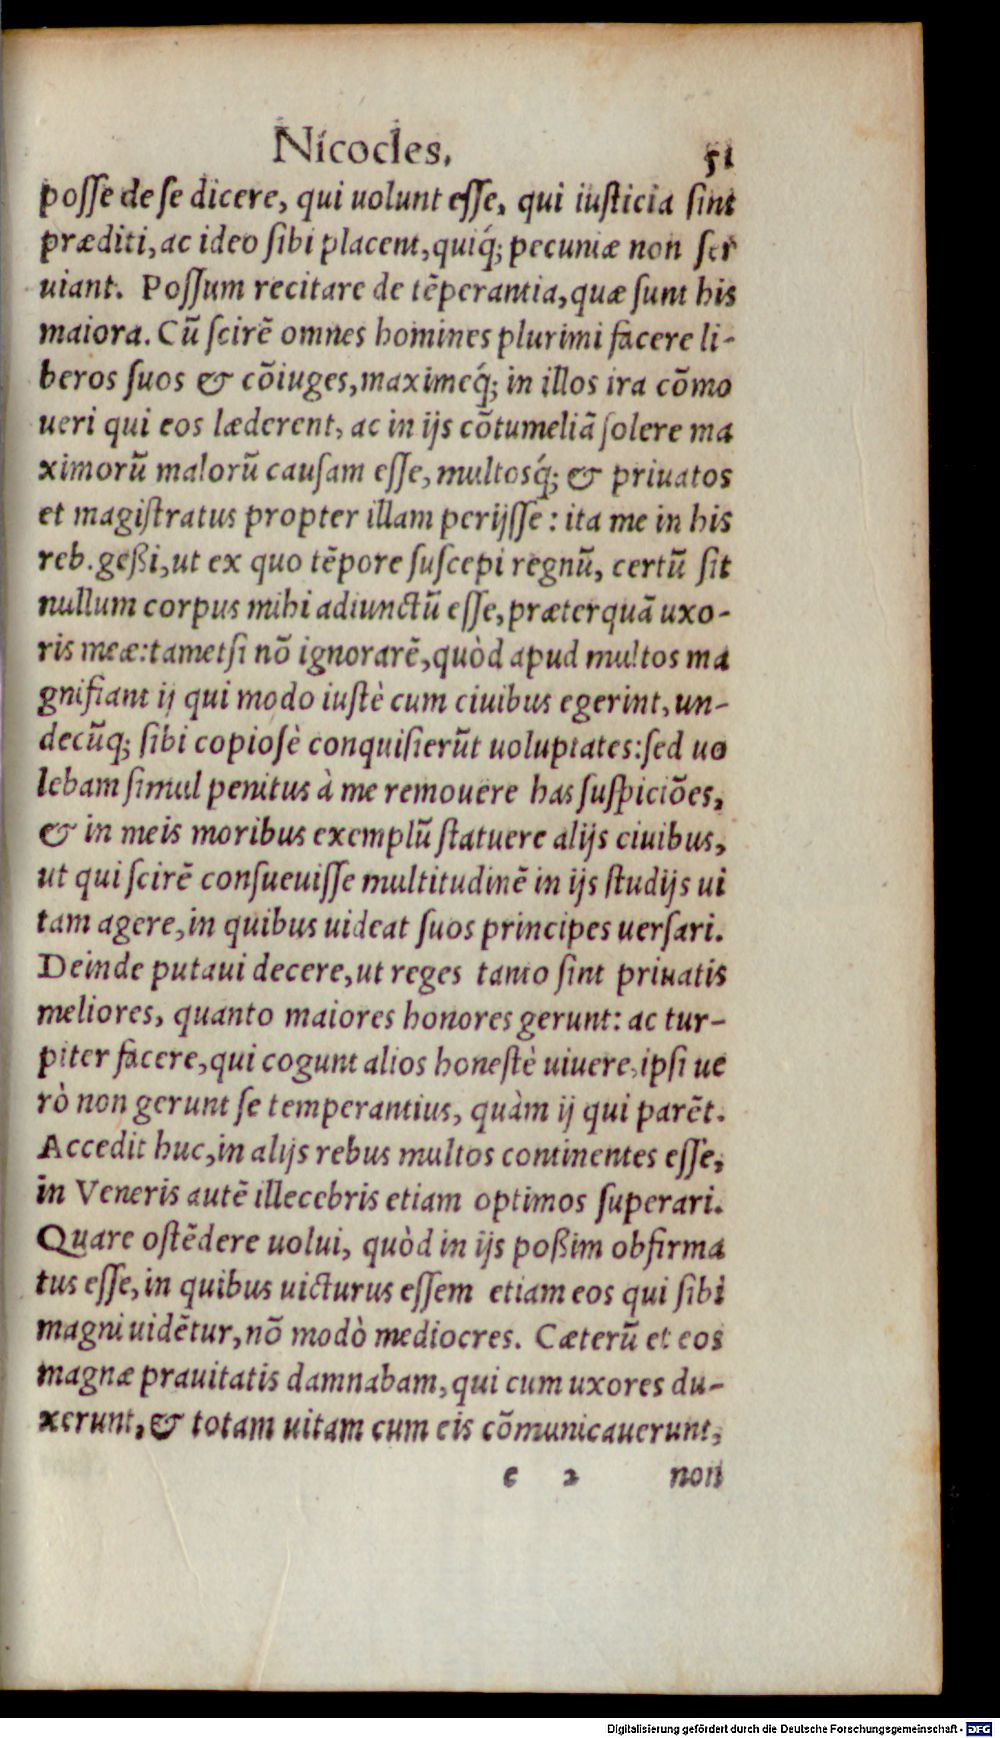 Nicocles. 51
posse de se dicere, qui uolunt esse, qui iusticia sint
præditi, ac ideo sibi placent, quiq́; pecuniæ non ser
uiant. Possum recitare de tẽperantia, quæ sunt his
maiora. Cũ scirẽ omnes homines plurimi facere li-
beros suos & cõiuges, maximeq́; in illos ira cõmo
ueri qui eos læderent, ac in ijs cõtumeliã solere ma
ximorũ malorũ causam esse, multosq́; & priuatos
et magistratus propter illam perijsse: ita me in his
reb. geßi, ut ex quo tẽpore suscepi regnũ, certũ sit
nullum corpus mihi adiunctũ esse, præterquã uxo-
ris meæ: tametsi nõ ignorarẽ, quòd apud multos ma
gnifiant ij qui modo iustè cum ciuibus egerint, un-
decũq; sibi copiosè conquisierũt uoluptates: sed uo
lebam simul penitus à me remouere has suspiciões,
& in meis moribus exemplũ statuere alijs ciuibus,
ut qui scirẽ consueuisse multitudinẽ in ijs studijs ui
tam agere, in quibus uideat suos principes uersari.
Deinde putaui decere, ut reges tanto sint priuatis
meliores, quanto maiores honores gerunt: ac tur-
piter facere, qui cogunt alios honestè uiuere, ipsi ue
rò non gerunt se temperantius, quàm ij qui parẽt.
Accedit huc, in alijs rebus multos continentes esse,
in Veneris autẽ illecebris etiam optimos superari.
Quare ostẽdere uolui, quòd in ijs poßim obfirma
tus esse, in quibus uicturus essem etiam eos qui sibi
magni uidẽtur, nõ modò mediocres. Cæterũ et eos
magnæ prauitatis damnabam, qui cum uxores du-
xerunt, & totam uitam cum eis cõmunicauerunt,
e 2 non
Digitalisierung gefördert durch die Deutsche Forschungsgemeinschaft - DFG